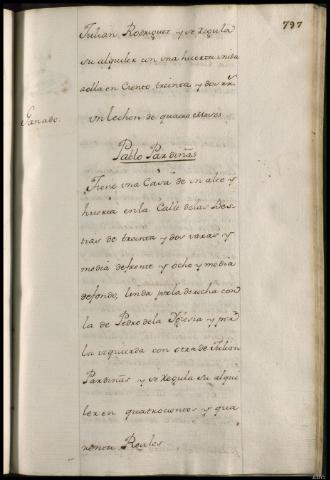 797
Julian Rodriguez y se Regula
su alquiler con una huerta unida
a ella en Ciento treinta y dos rrs.
Ganado.
Un lechon de quatro meses
Pablo Pardiñas
Tiene una Casa de un alto y
huerta en la Calle de las Bes-
tias de treinta y dos varas y
media de frente y ocho y media
de fondo, linda por la derecha con
la de Pedro de la Yglesia y por
la izquierda con otra de Julian
Pardiñas y se Regula su alqui
ler en quatrocientos y qua
renta Reales